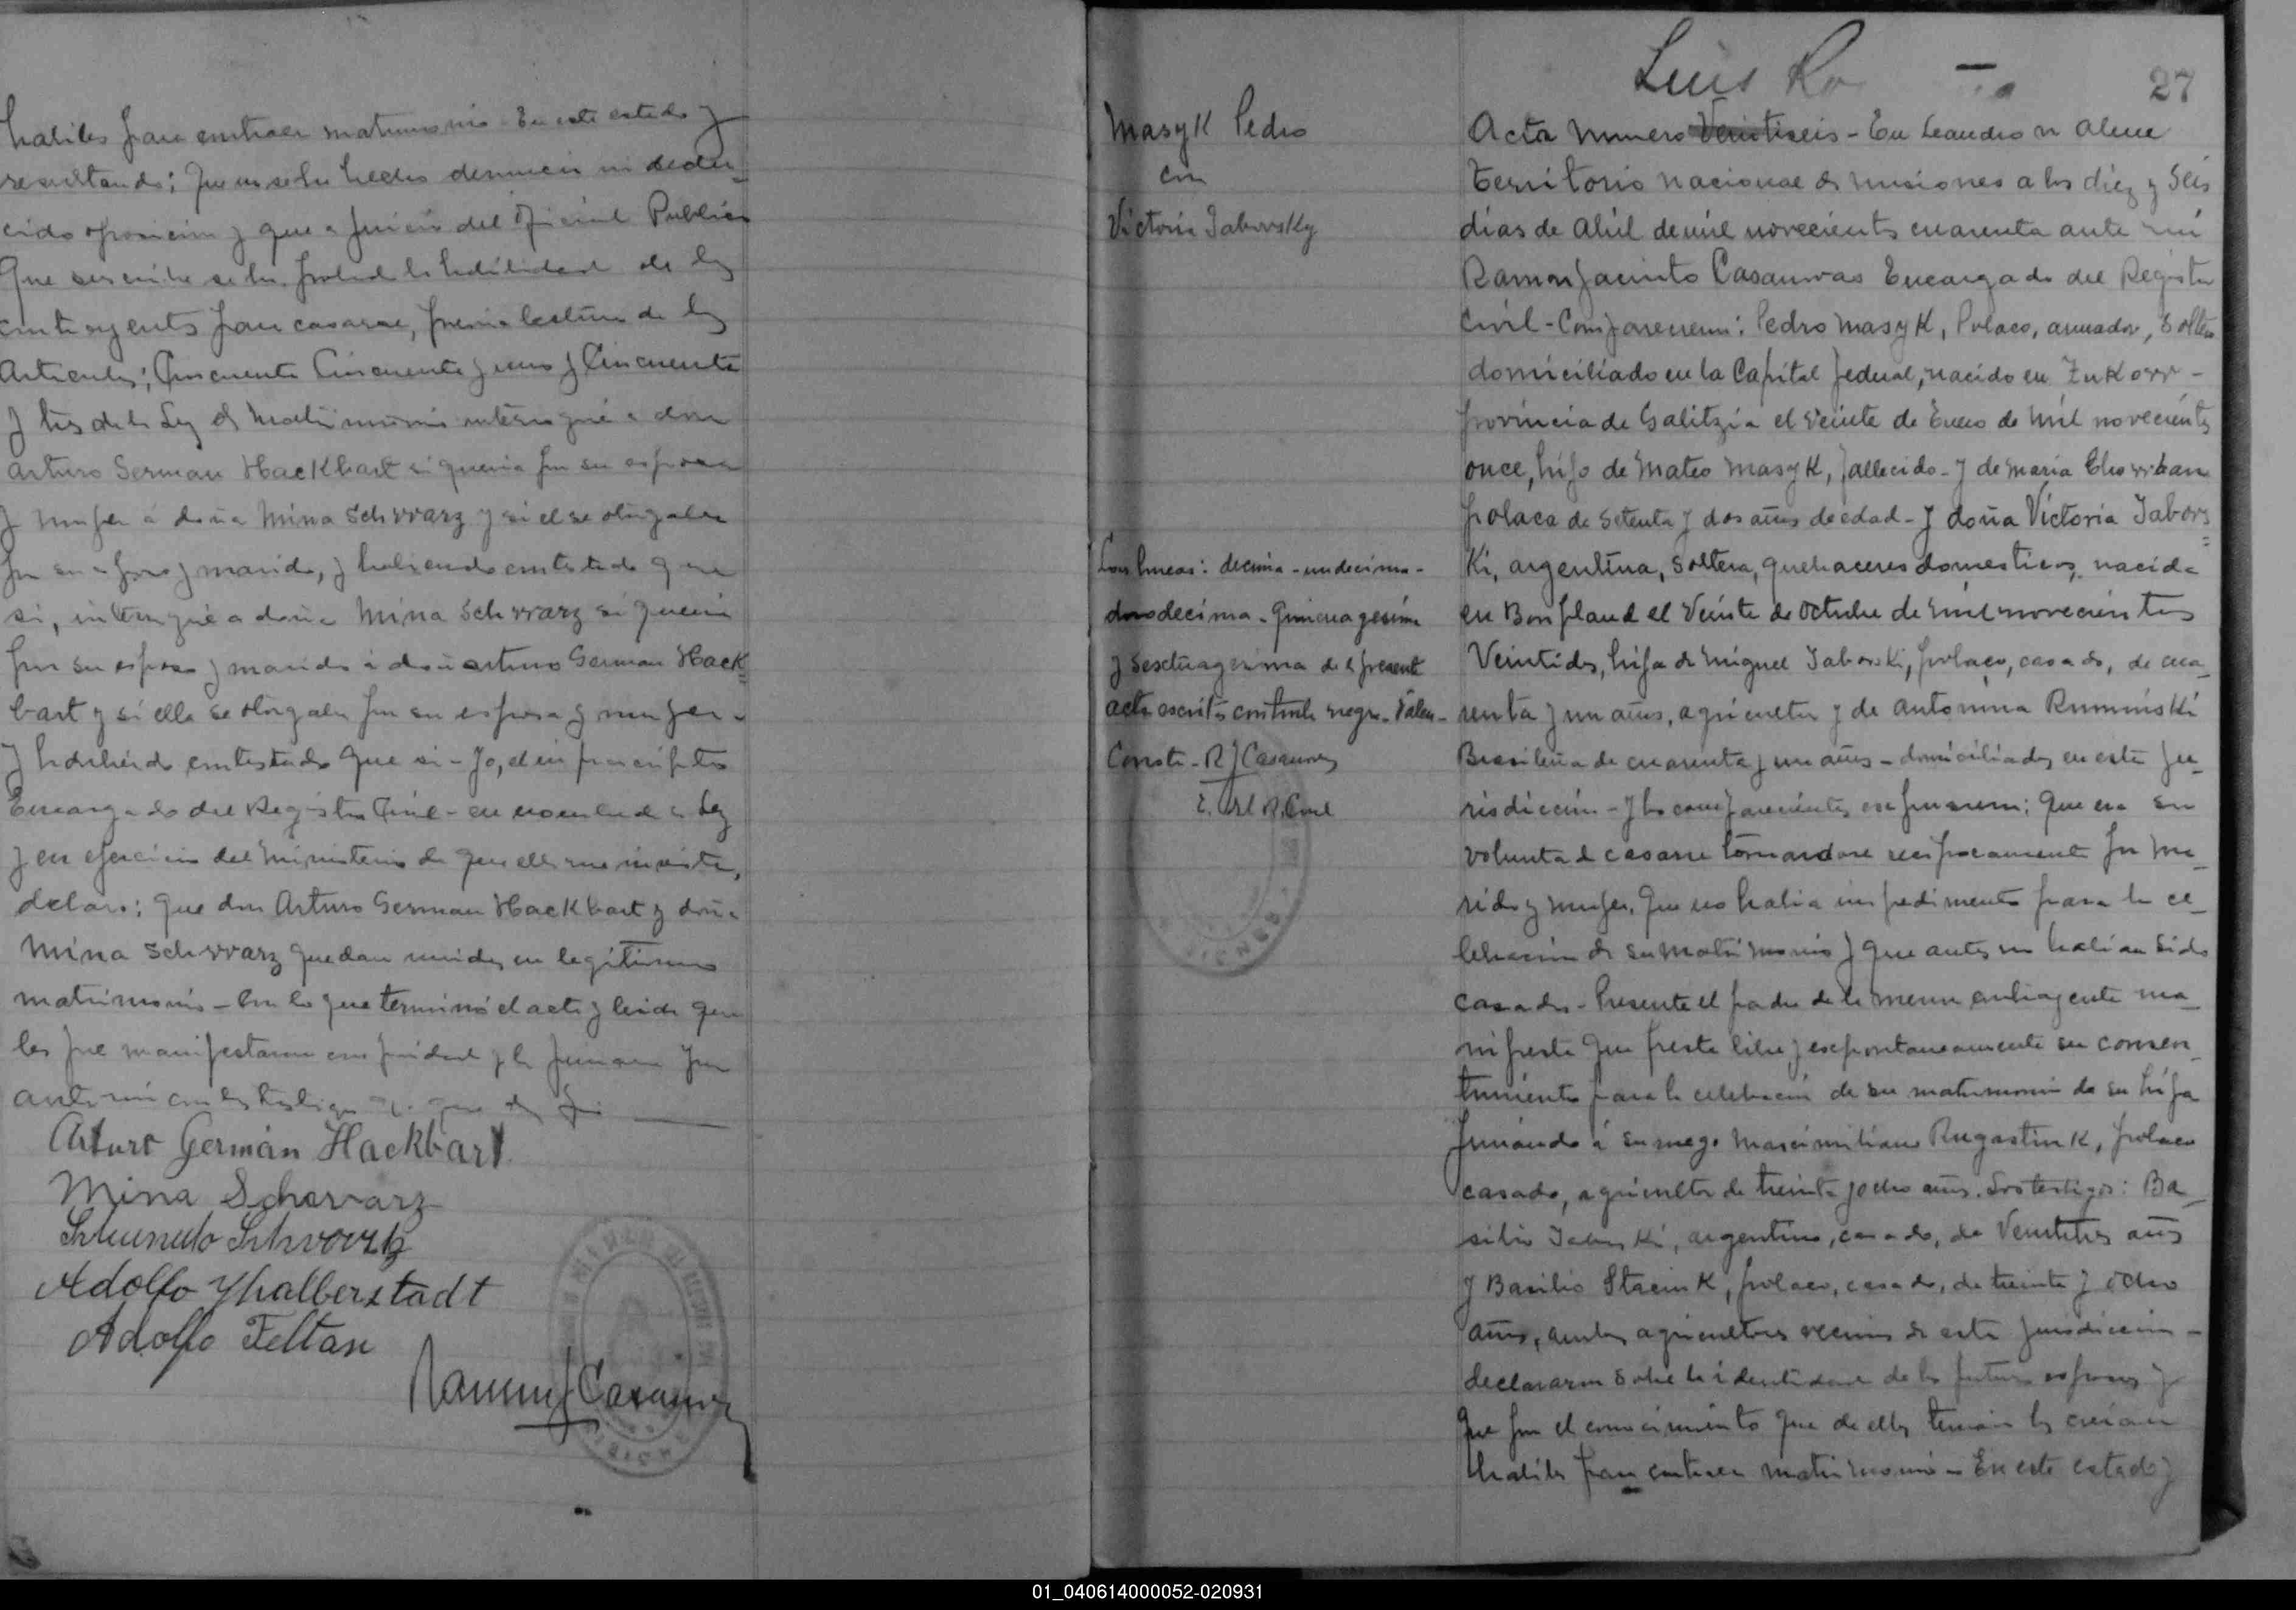 habiles para contraer matrimonio - En este estado y
resultando; Que no se ha hecho denuncia ni dedu=
cido oposicion y que a juicio del Oficial Publico
que suscribe se ha probado la habilidad de los
contrayentes para casarse, previa lectura de los
Articulos; Cincuenta Cincuenta y uno y Cincuenta
y tres de la Ley de Matrimonio interrogué a don
Arturo German Hackbart si queria por su esposa
y mujer á doña Mina Schwarz y si el se obligaba
por su esposo y marido, y habiendo contestado que
si, interrogué a doña Mina Schwarz si queria
por su esposo y marido á don Arturo German Hack=
bart y si ella se obligaba por su esposa y mujer -
y habiendo contestado que si - Yo, el infrascripto
Encargado del Registro Civil - en nombre de la Ley
y en ejercicio del ministerio de que ella me inviste,
declaro: Que don Arturo German Hackbart y doña
Mina Schwarz quedan unidos en legitimo
matrimonio - Con lo que terminó el acto y leida que
les fue manifestaron conformidad y la firman por
ante mi con los testigos de que doy fé
Arturo Germán Hackbart
Mina Schwarz
Adolfo Yhalberstadt
Adolfo Feltan
Ramon J Casanovas
Luis
27
Masyk Pedro
con
Victoria Jaborsky
Las lineas: decima - undecima -
duodecima - quincuagesima
y sesctuagesima de la presente
acta escrita con tinta negra - Valen -
Conste - R J Casanovas
E. del R. Civil
Acta numero Veintiseis - En Leandro N Alem
Territorio nacional de Misiones a los diez y seis
dias de Abril de mil novecientos cuarenta ante mi
Ramon Jacinto Casanovas Encargado del Registro
Civil - Comparecieron: Pedro Masyk, Polaco, armador, Soltero
domiciliado en la Capital Federal, nacido en Zukow -
provincia de Galitzia el veinte de Enero de mil novecientos
once, hijo de Mateo Masyk, fallecido - y de Maria
polaca de setenta y dos años de edad - y doña Victoria Jabors=
ki, argentina, soltera, quehaceres domesticos, nacida
en Bonpland el Veinte de Octubre de mil novecientos
Veintidos, hija de Miguel Jaborski, polaco, casado, de cua_
renta y un años, agricultor y de Antonina Ruminski
Brasileña de cuarenta y un años - domiciliados en esta ju_
risdiccion - y los comparecientes expusieron: Que era su
voluntad casarse tomandose reciprocamente por ma_
rido y mujer, Que no habia impedimento para la ce_
lebracion de su matrimonio y que antes no habian sido
casados - Presente el padre de la menor contrayente ma_
nifiesta que presta libre y espontaneamente su consen_
timiento para la celebracion de su matrimonio de su hija
firmando á su ruego Mascimiliano Rugastink, polaco
casado, agricultor de treinta y ocho años. Los testigos: Ba_
silio Jaborski, argentino, casado, de Veintitres años
y Basilio Stacink, polaco, casado, de treinta y ocho
años, ambos agricultores vecinos de esta jurisdiccion -
declararon sobre la identidad de los futuros esposos y
que por el conocimiento que de ellos tenian los creian
habiles para contraer matrimonio - En este estado y
01_040614000052-020931